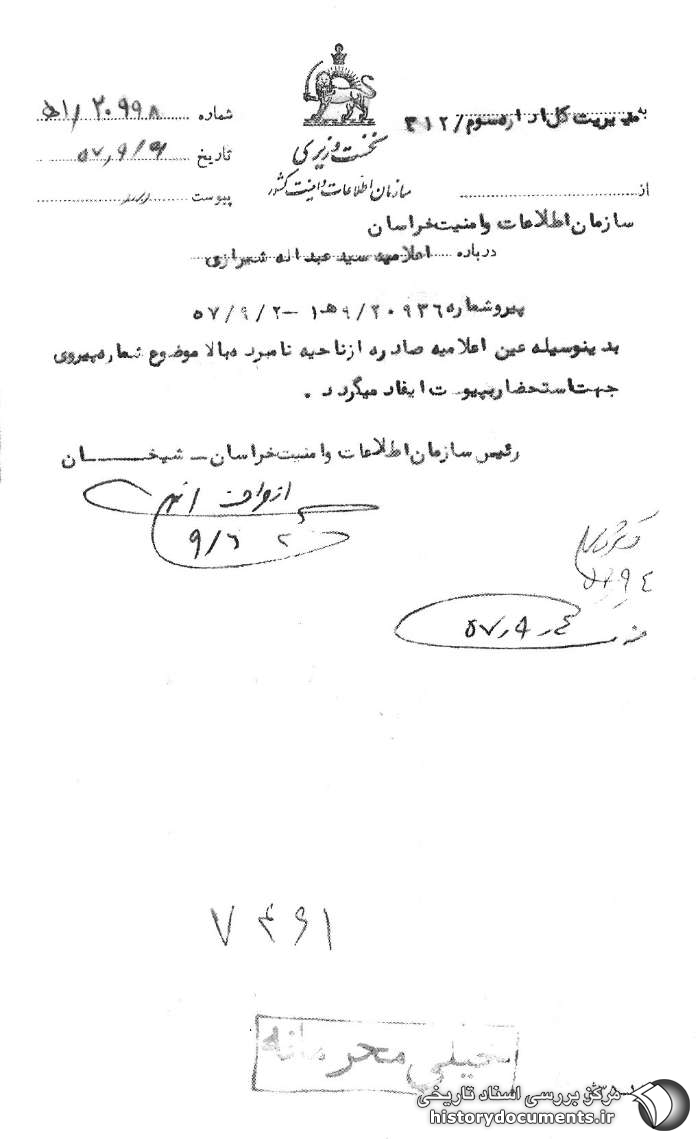 به مدیریت کل اداره سوم/۳۱۲
شماره ۲۰۹۹۸/ه۱
نخست وزیری
تاریخ
سازمان اطلاعات و امنیت کشور
از
پیوست
سازمان اطلاعات و امنیت خراسان
درباره اعلامیه سید عبداله شیرازی
پیرو شماره ۲۰۹۳۶/۹ه۱ -۵۷/۹/۲
بدینوسیله عین اعلامیه صادره از ناحیه نامبرده بالا موضوع شماره پیروی
جهت استحضار بپیوست ایفاد میگردد .
رئیس سازمان اطلاعات و امنیت خراسان ـ شیخان
از طرف
۹/۶
۵۷,۹,۴
۷۴۶۱
خیلی محرمانه
مرکز بررسی اسناد تاریخی
historydocuments.ir